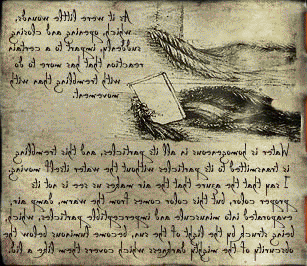 As it were little wounds,
which, opening and closing
suddenly, impart to a certain
reaction that has more to do
with trembling than with
movement.
Water is homogeneous in all its particles, and this trembling
is transmitted to its particles without the water itself moving.
I say that the azure that the air makes us see is not its
proper color, but this color comes from warm, damp air,
evaporated into minuscule and imperceptible particles, which,
being struck by the light of the sun, become luminous below the
obscurity of the mighty darkness which covers them like a lid.